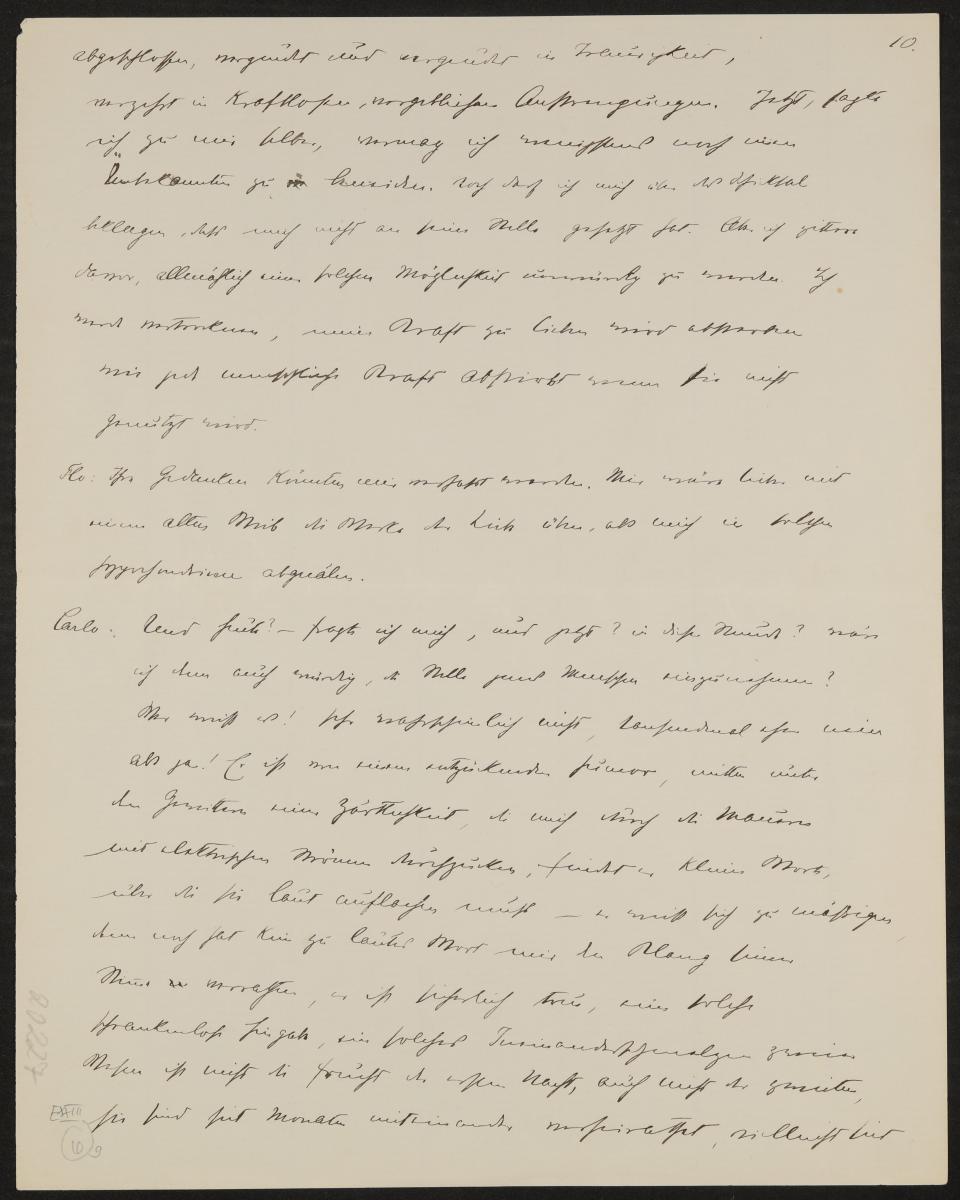 10.
abgeschlossen, vergeudet und vergeudet in Traurigkeit,
verzehrt in Kraftlosen, vergeblichen Anstrengungen. Jetzt, sagte
ich zu mir selber, vermag ich wenigstens noch einen
Unbekannten zu beneiden. Noch darf ich mich über das Schicksal
beklagen, daß mich nicht an seine Stelle gesetzt hat. Aber ich zittere
davor, allmählich einer solchen Möglichkeit unwürdig zu werden. Ich
werde vertrocknen, meine Kraft zu lieben wird absterben
wie jede menschliche Kraft abstirbt wenn sie nicht
genützt wird.
Flo: Ihre Gedanken könnten mir verhaßt werden. Mir wäre lieber mit
einem alten Weib die Werke der Liebe üben, als mich in solchen
hypochondrieen abquälen.
Carlo: Und heute? – fragte ich mich, und jetzt? in dieser Stunde? wäre
ich denn auch würdig, die Stelle jenes Menschen einzunehmen?
Wer weiß es! sehr wahrscheinlich nicht, tausendmal eher nein
als ja! Er ist von einem entzückenden Humor, mitten unter
den Gewittern seiner Zärtlichkeit, die mich durch die Mauern
mit elektrischen Strömen durchzucken, findet er kleine Worte,
über die sie laut auflachen muß – er weiß sich zu mäßigen,
denn noch hat kein zu lautes Wort mir den Klang seiner
Stimme verrathen, er ist sicherlich treu, eine solche
schrankenlose Hingabe, ein solches Ineinanderschmelzen zweier
Wesen ist nicht die Frucht der ersten Nacht, auch nicht der zweiten,
sie sind seit Monaten miteinander verheirathet, vielleicht seit
EA III
10
9